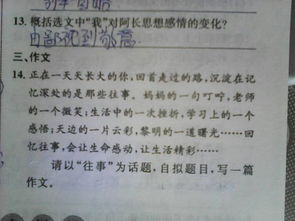 13. 概括选文中“我”对阿长思想感情的变化?
三、作文
14. 正在一天天长大的你,回首走过的路,沉淀在记
忆深处的是那些往事。妈妈的一句叮咛,老师
的一个微笑;生活中的一次挫折,学习上的一个
感悟;天边的一片云彩,黎明的一道曙光……回
忆往事,会让生命感动,让生活精彩……
请以“往事”为话题,自拟题目,写一篇
作文。